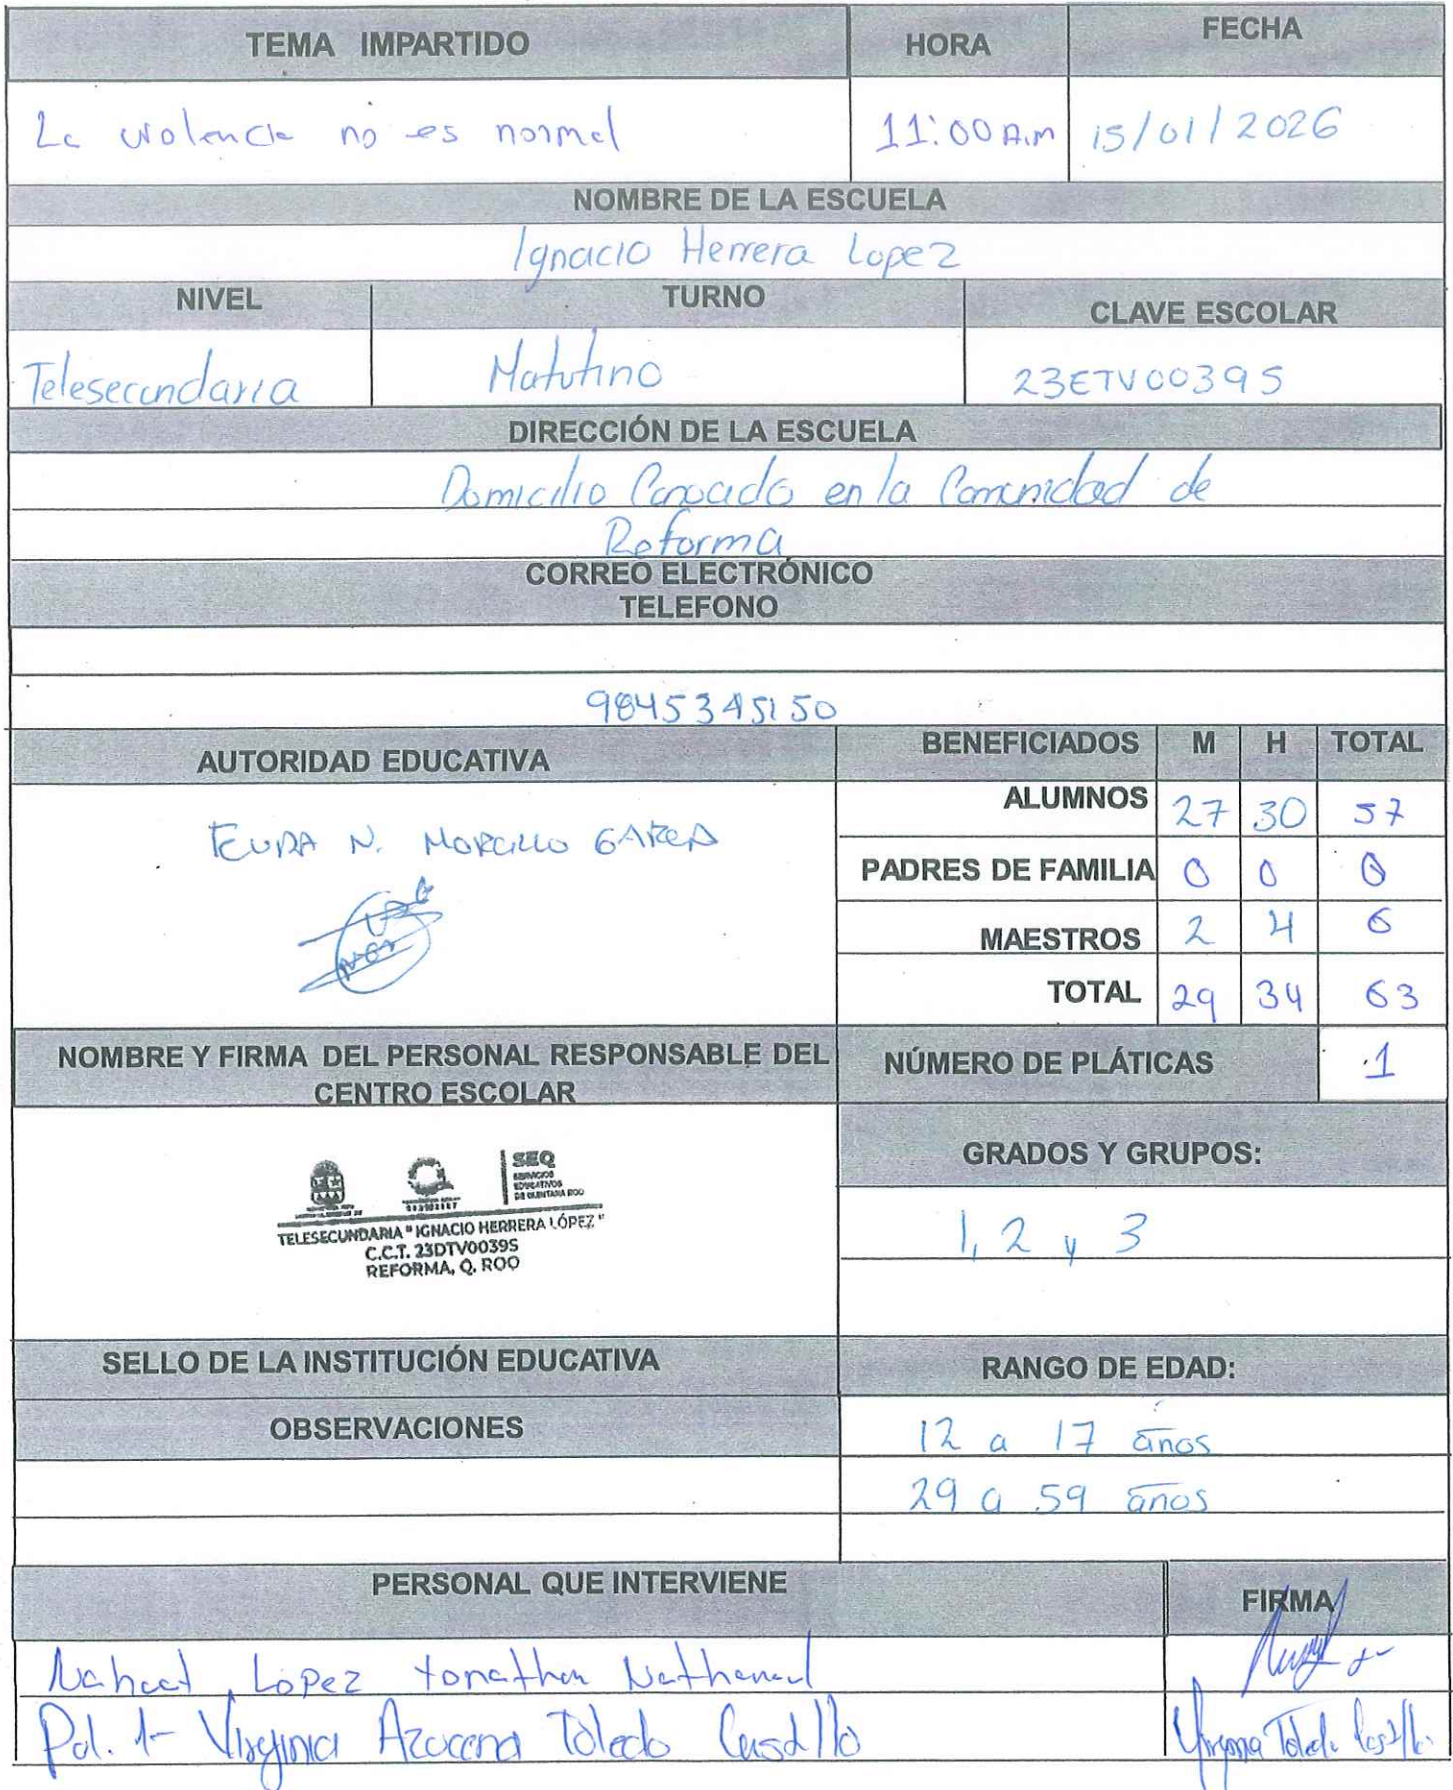 TEMA IMPARTIDO HORA FECHA
La violencia no es normal 11:00 A.m 15/01/2026
NOMBRE DE LA ESCUELA
Ignacio Herrera Lopez
NIVEL TURNO CLAVE ESCOLAR
Telesecundaria Matutino 23ETV0039S
DIRECCIÓN DE LA ESCUELA
Domicilio en la Comunidad de
Reforma
CORREO ELECTRÓNICO
TELEFONO
9845345150
AUTORIDAD EDUCATIVA BENEFICIADOS M H TOTAL
ALUMNOS 27 30 57
N.
PADRES DE FAMILIA 0 0 0
MAESTROS 2 4 6
TOTAL 29 34 63
NOMBRE Y FIRMA DEL PERSONAL RESPONSABLE DEL
CENTRO ESCOLAR
NÚMERO DE PLÁTICAS 1
GRADOS Y GRUPOS:
SEQ
SERVICIOS
EDUCATIVOS
DE QUINTANA ROO
TELESECUNDARIA "IGNACIO HERRERA LÓPEZ"
C.C.T. 23DTV0039S
REFORMA, Q. ROO
1, 2 y 3
SELLO DE LA INSTITUCIÓN EDUCATIVA RANGO DE EDAD:
OBSERVACIONES
12 a 17 años
29 a 59 años
PERSONAL QUE INTERVIENE FIRMA
Lopez Yonathan Nathanael
Pol. 1- Virginia Azucena Toledo Castillo Virginia Toledo Castillo